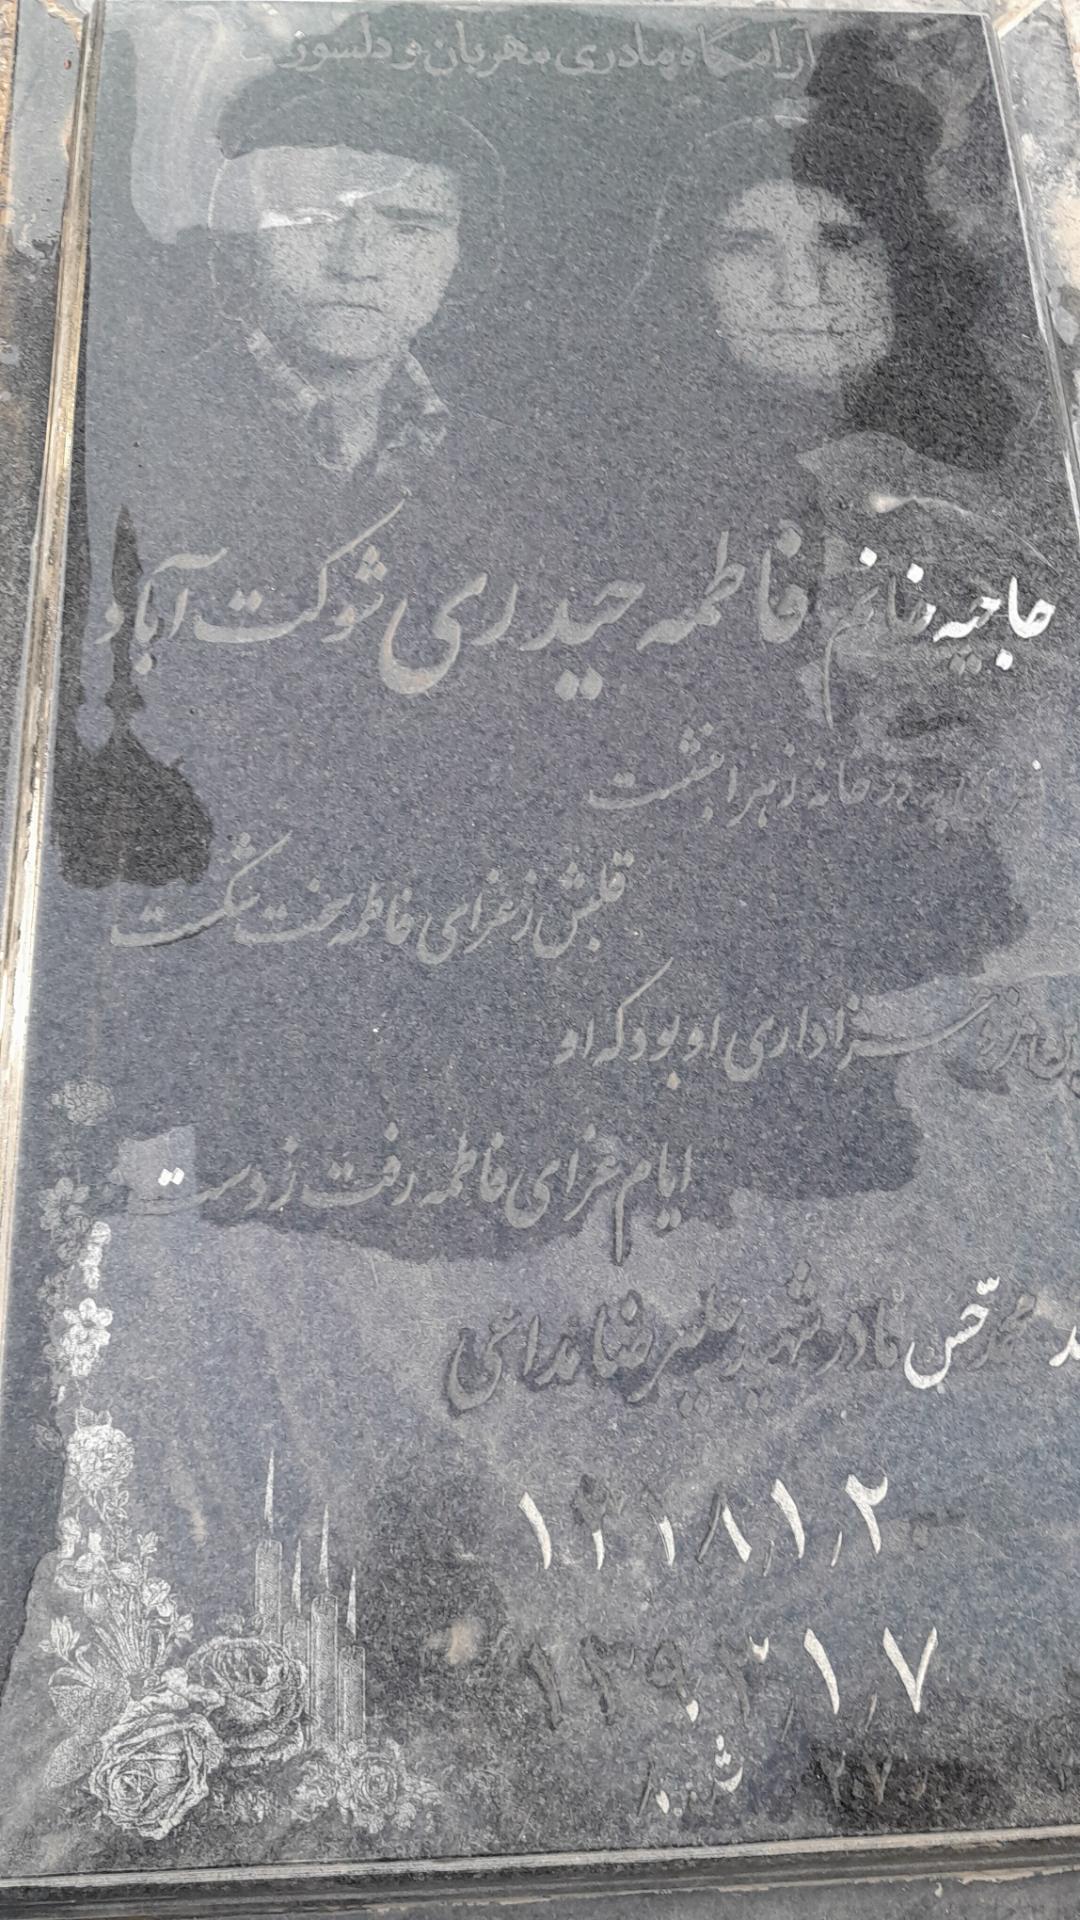 آرامگاه مادری مهربان و دلسوز
حاجیه خانم فاطمه حیدری شوکت آباد
در خانه زهرا بنشست
قلبش ز عزای فاطمه سخت شکست
عزاداری او بود که او
ایام عزای فاطمه رفت ز دست
محمدحسن مادر شهید علیرضا مداحی
۲ر۱ر۱۳۰۸
۷ر۱ر۱۳۹۳
ش